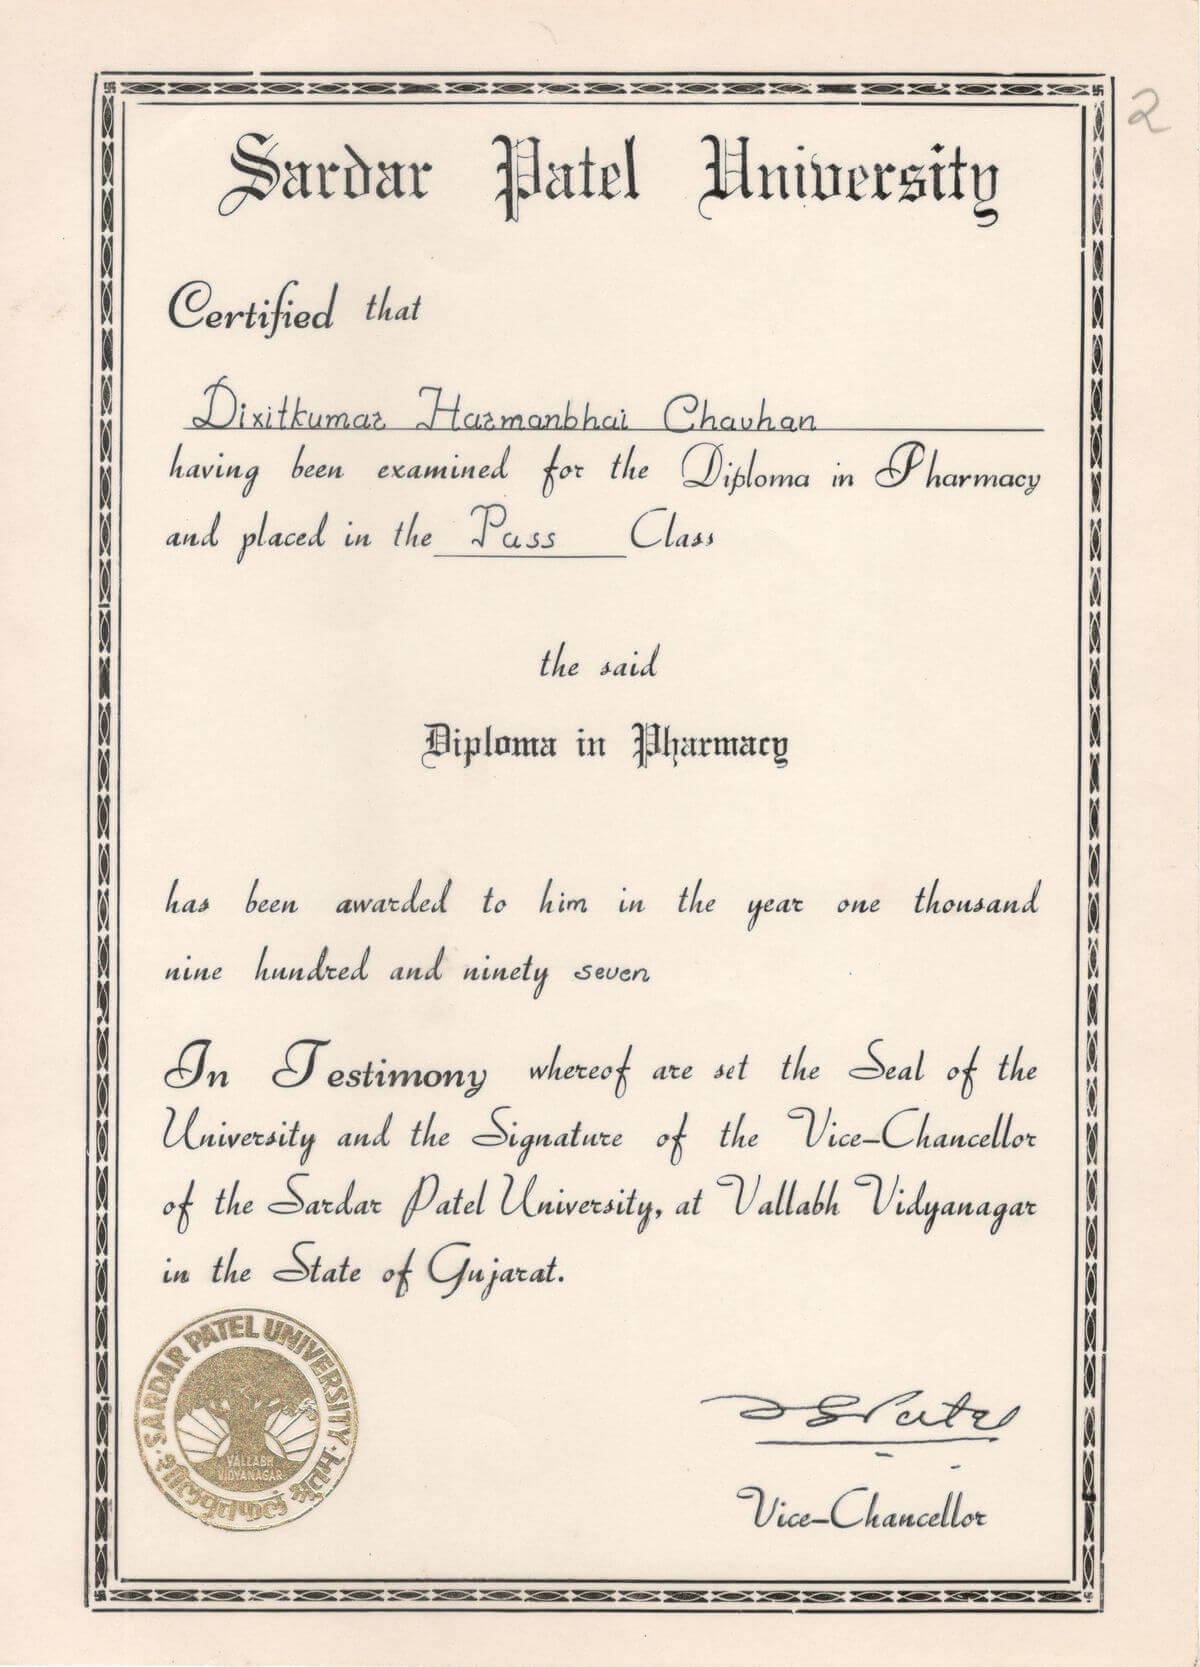 2
Sardar Patel University
Certified that
Dixitkumar Harmanbhai Chauhan
having been examined for the Diploma in Pharmacy
and placed in the Pass Class
the said
Diploma in Pharmacy
has been awarded to him in the year one thousand
nine hundred and ninety seven
In Testimony whereof are set the Seal of the
University and the Signature of the Vice-Chancellor
of the Sardar Patel University, at Vallabh Vidyanagar
in the State of Gujarat.
SARDAR PATEL UNIVERSITY
VALLABH
VIDYANAGAR
शीलवृत्तफलं श्रुतम्
Patel
Vice-Chancellor